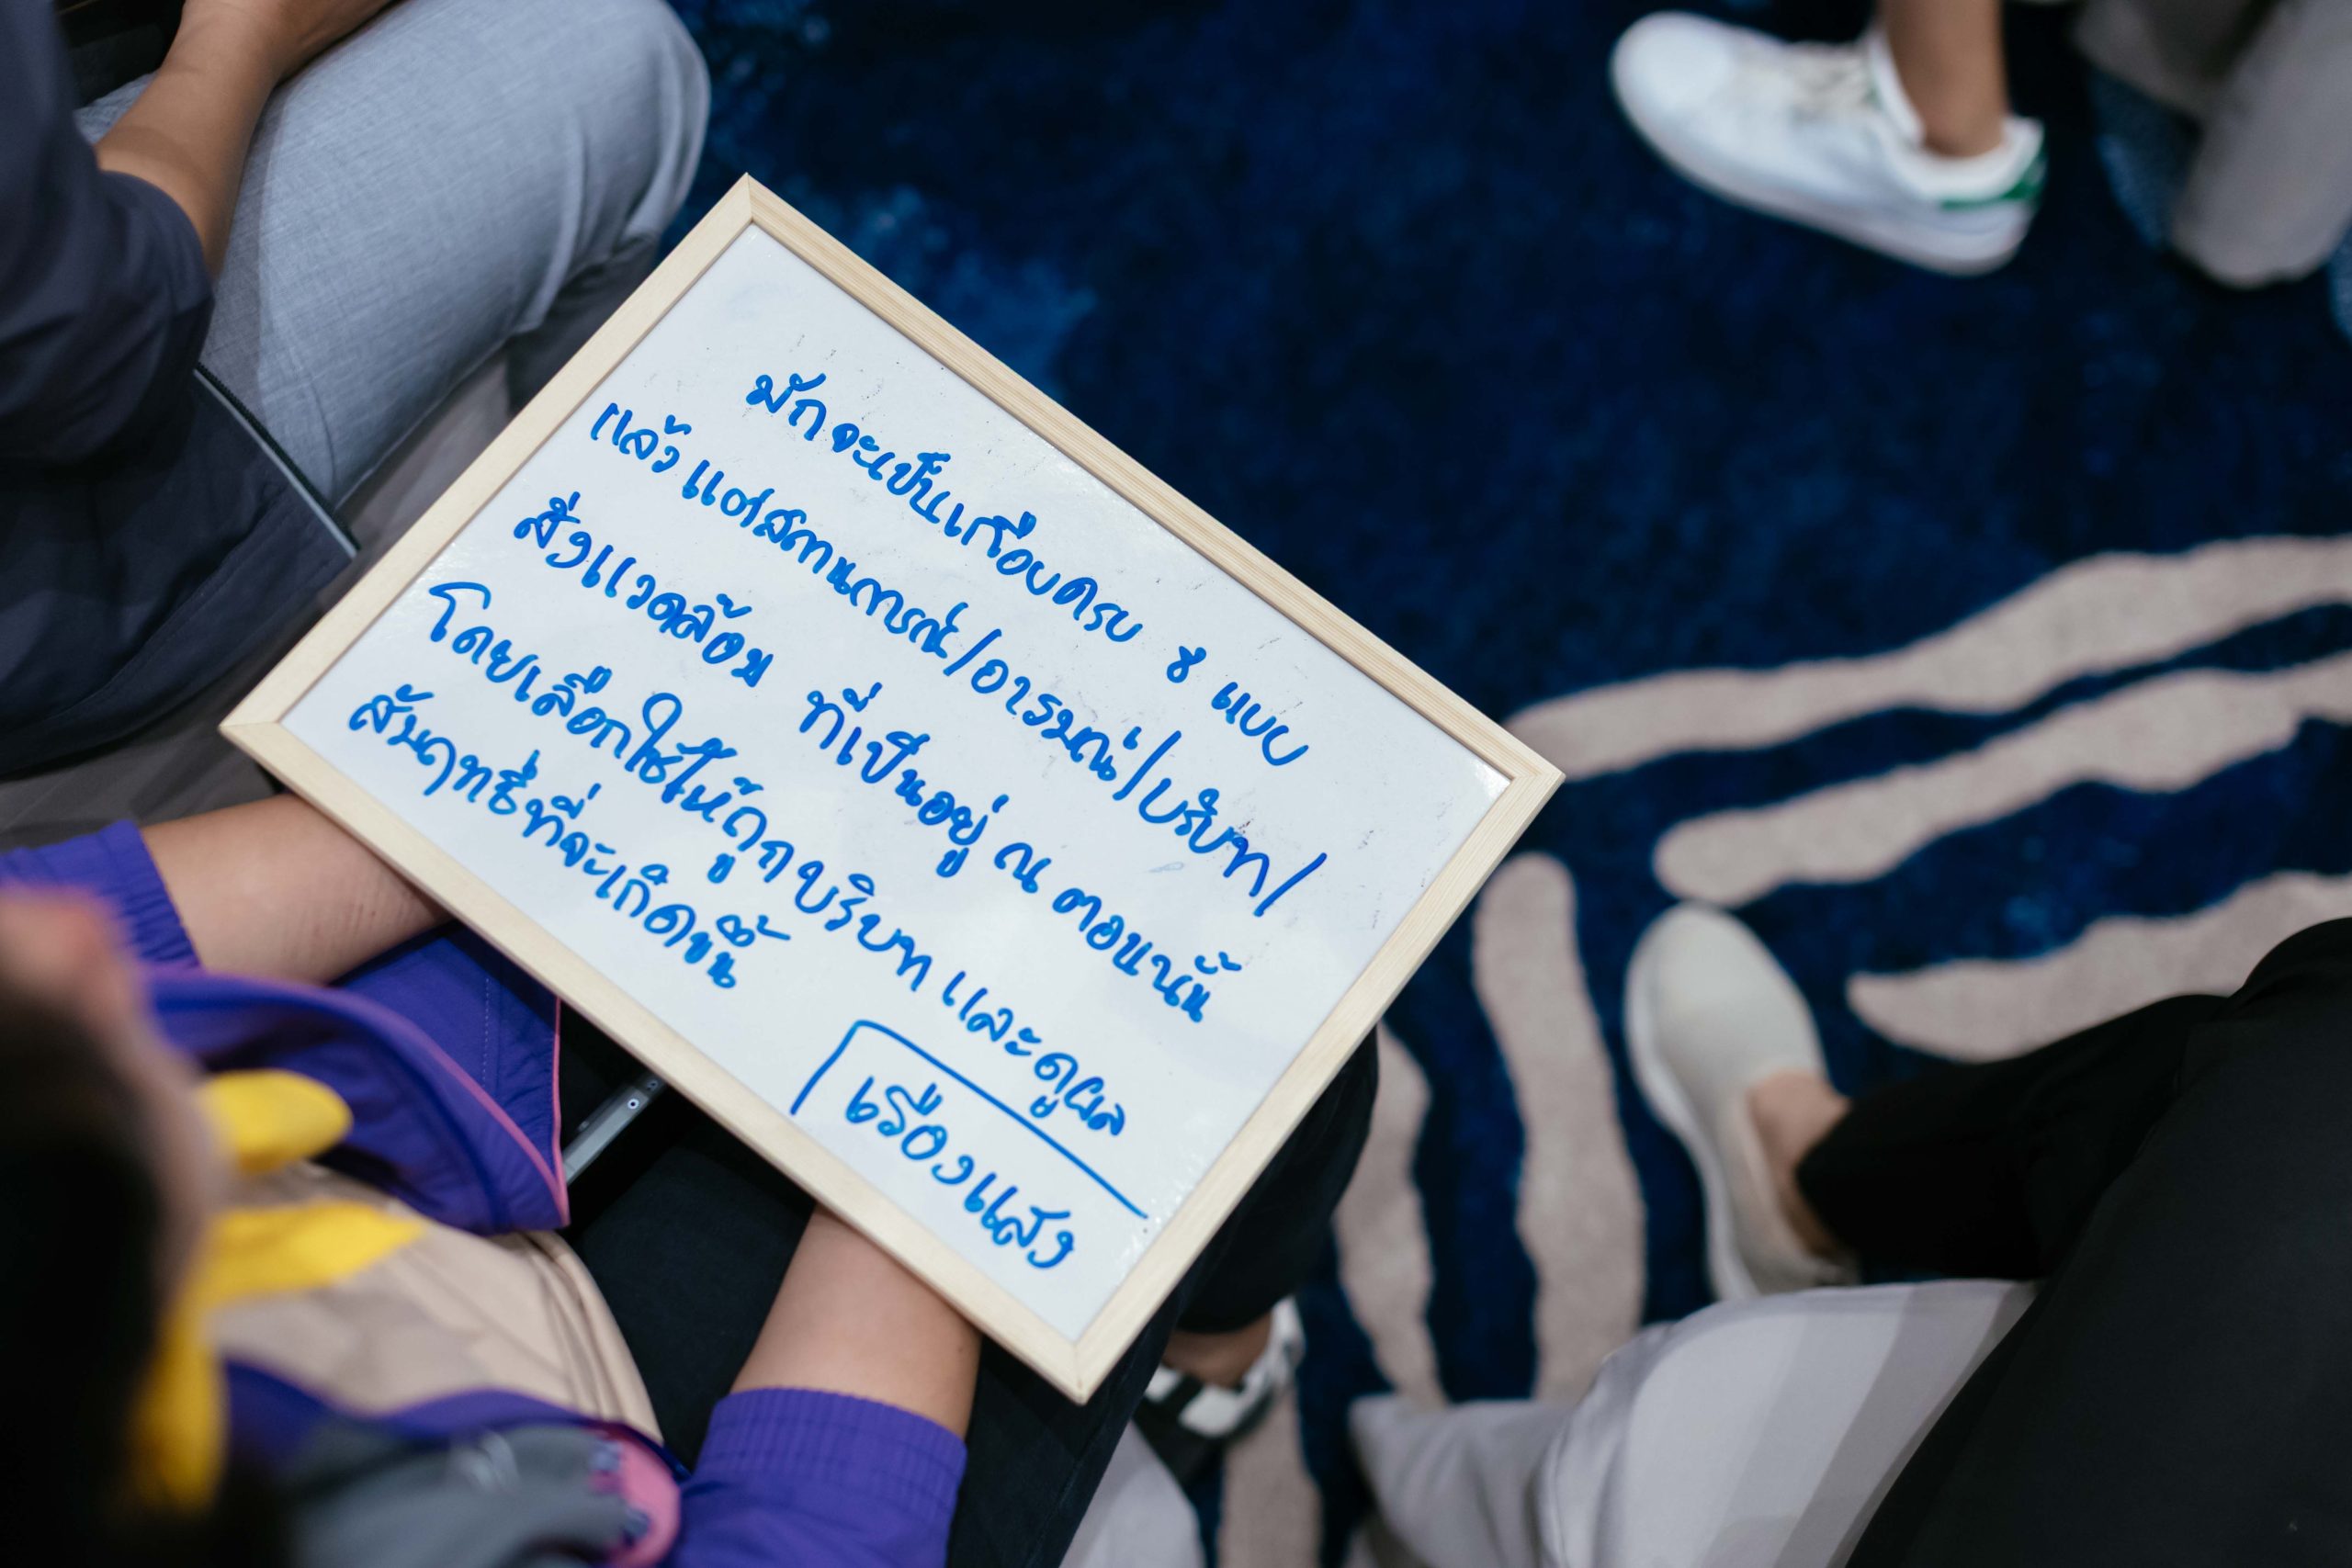 มักจะเป็นเกือบครบ ४ แบบ
แล้ว แต่สถานการณ์/อารมณ์/บริบท/
สิ่งแวดล้อม ที่เป็นอยู่ ณ ตอนนั้น
โดยเลือกใช้ให้ถูกบริบท และดูผล
สัมฤทธิ์ที่จะเกิดขึ้น
เรืองแสง